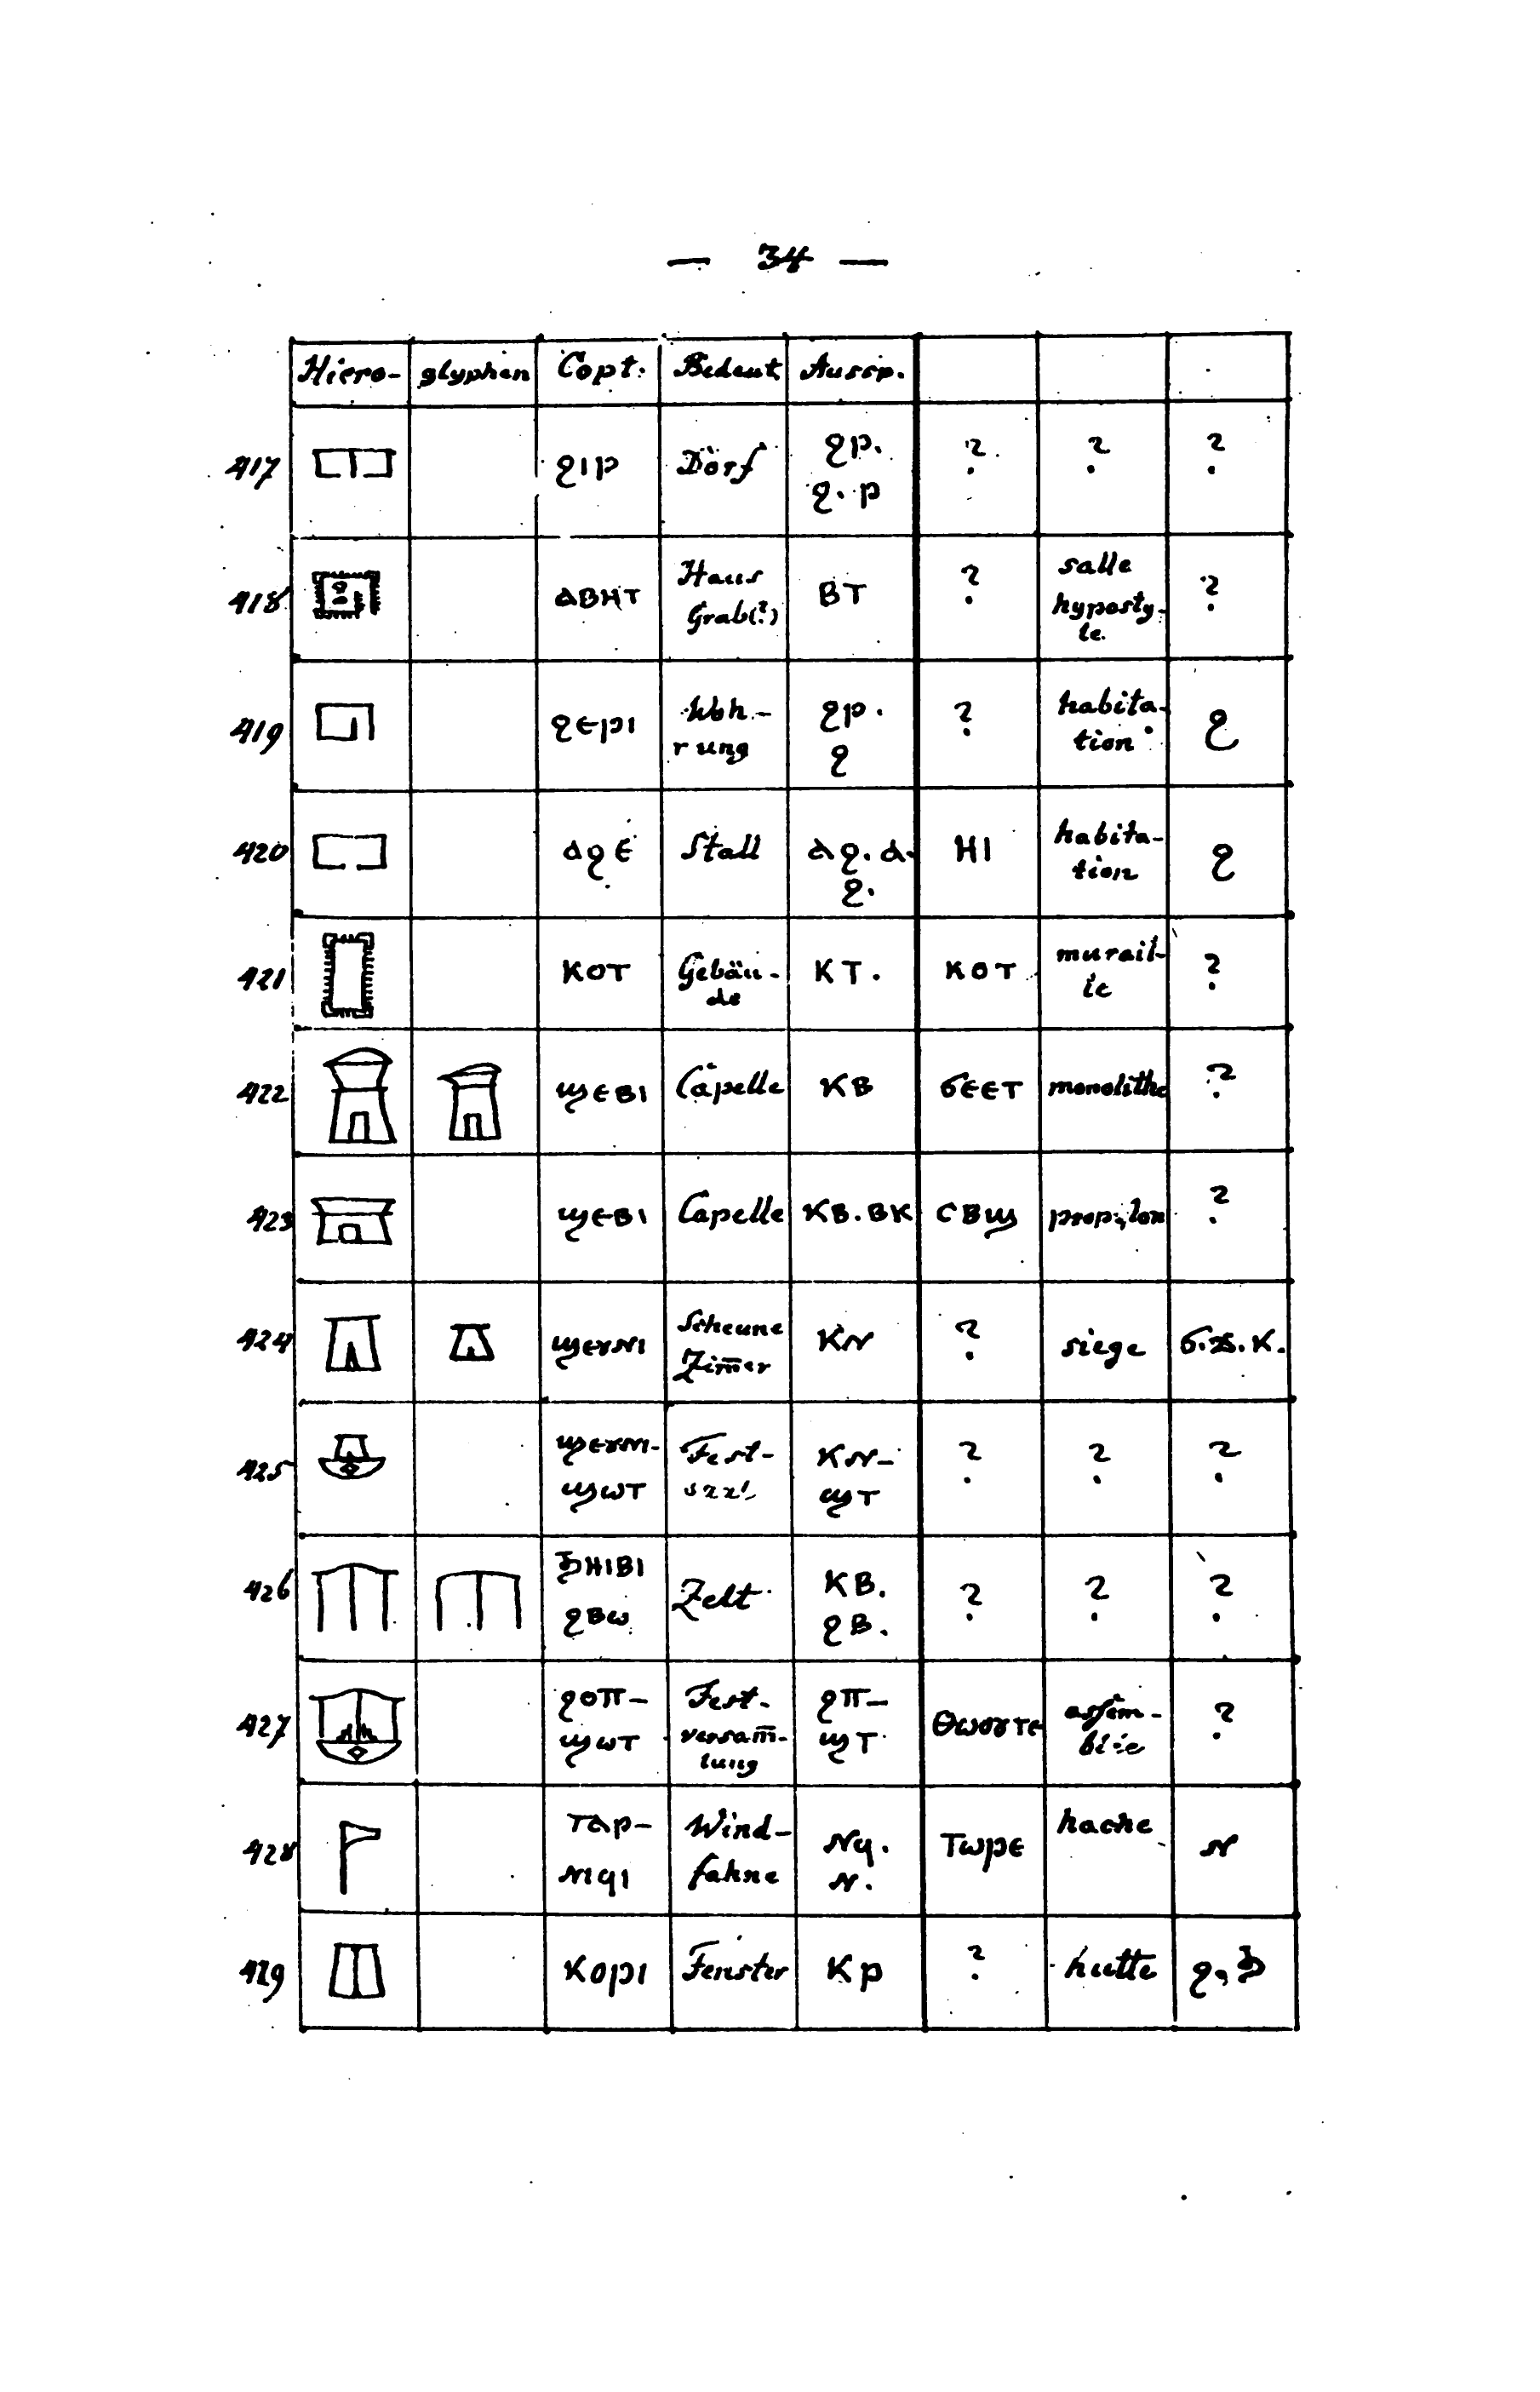 — 34 —
Hiero- glyphen Copt. Bedeut Aussp.
417 ϩιρ Dorf ϩρ. ϩ. ρ ? ? ?
418 ⲁⲃⲏⲧ Haus Grab(?) ⲃⲧ ? salle hyposty-le. ?
419 ϩⲉⲣⲓ Woh-nung ϩⲣ. ϩ ? habita-tion ϩ
420 ⲁϩⲉ Stall ⲁϩ. ⲁ. ϩ. ⲏⲓ habita-tion ϩ
421 ⲕⲟⲧ Gebäu-de ⲕⲧ. ⲕⲟⲧ murail-le ?
422 ϣⲉⲃⲓ Capelle ⲕⲃ ϭⲉⲉⲧ monolithe ?
423 ϣⲉⲃⲓ Capelle ⲕⲃ. ⲃⲕ ⲥⲃϣ propylon ?
424 ϣⲉⲩⲛⲓ Scheune Zim̅er ⲕⲛ ? siege ϭ. ϫ. ⲕ.
425 ϣⲉⲩⲛⲓ-ϣⲱⲧ Fest-saal ⲕⲛ-ϣⲧ ? ? ?
426 ϧⲏⲓⲃⲓ ϩⲃⲱ Zelt ⲕⲃ. ϩⲃ. ? ? ?
427 ϩⲟⲡ-ϣⲱⲧ Fest-versam̅-lung ϩⲡ-ϣⲧ ⲑⲱⲟⲩⲧⲉ assem-blée ?
428 ⲧⲁⲣ-ⲛⲓϥⲓ Wind-fahne ⲛϥ. ⲛ. ⲧⲱⲣⲉ hache ⲛ
429 ⲕⲟⲣⲓ Fenster ⲕⲣ ? hutte ϩ, ϧ